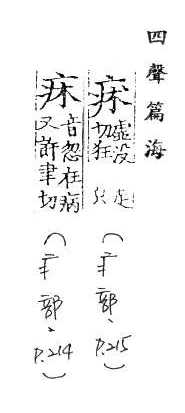 四聲篇海
虛没切狂走
(疒部、P.215)
音忽狂病又許聿切
(疒部、P.214)